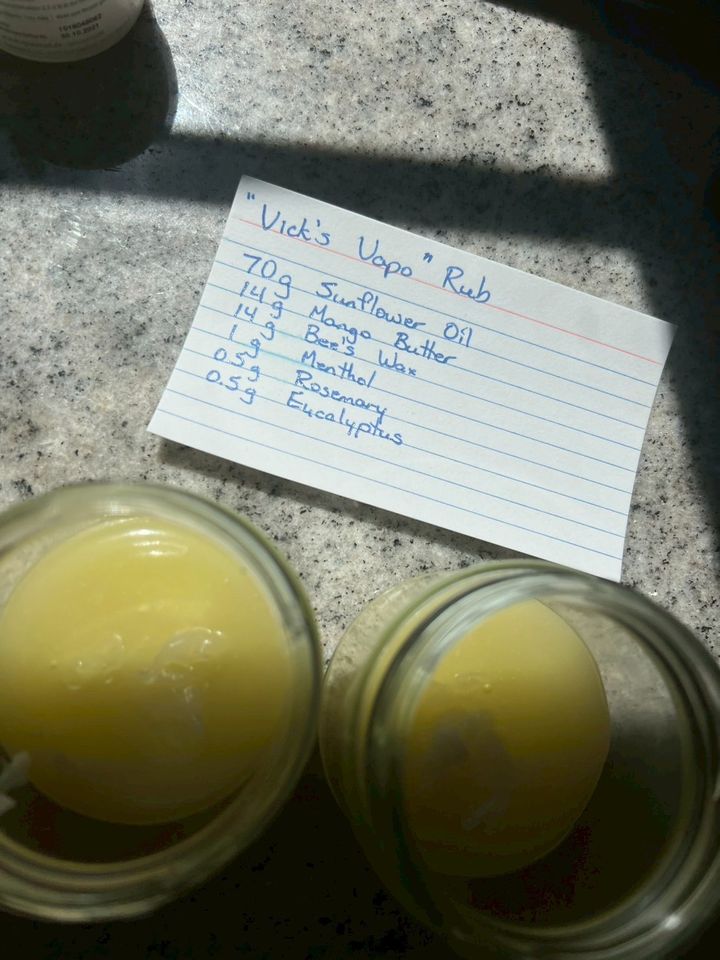 1019048062
30.10.2021
"Vick's Vapo" Rub
70g Sunflower Oil
14g Mango Butter
14g Bee's Wax
1g Menthol
0.5g Rosemary
0.5g Eucalyptus